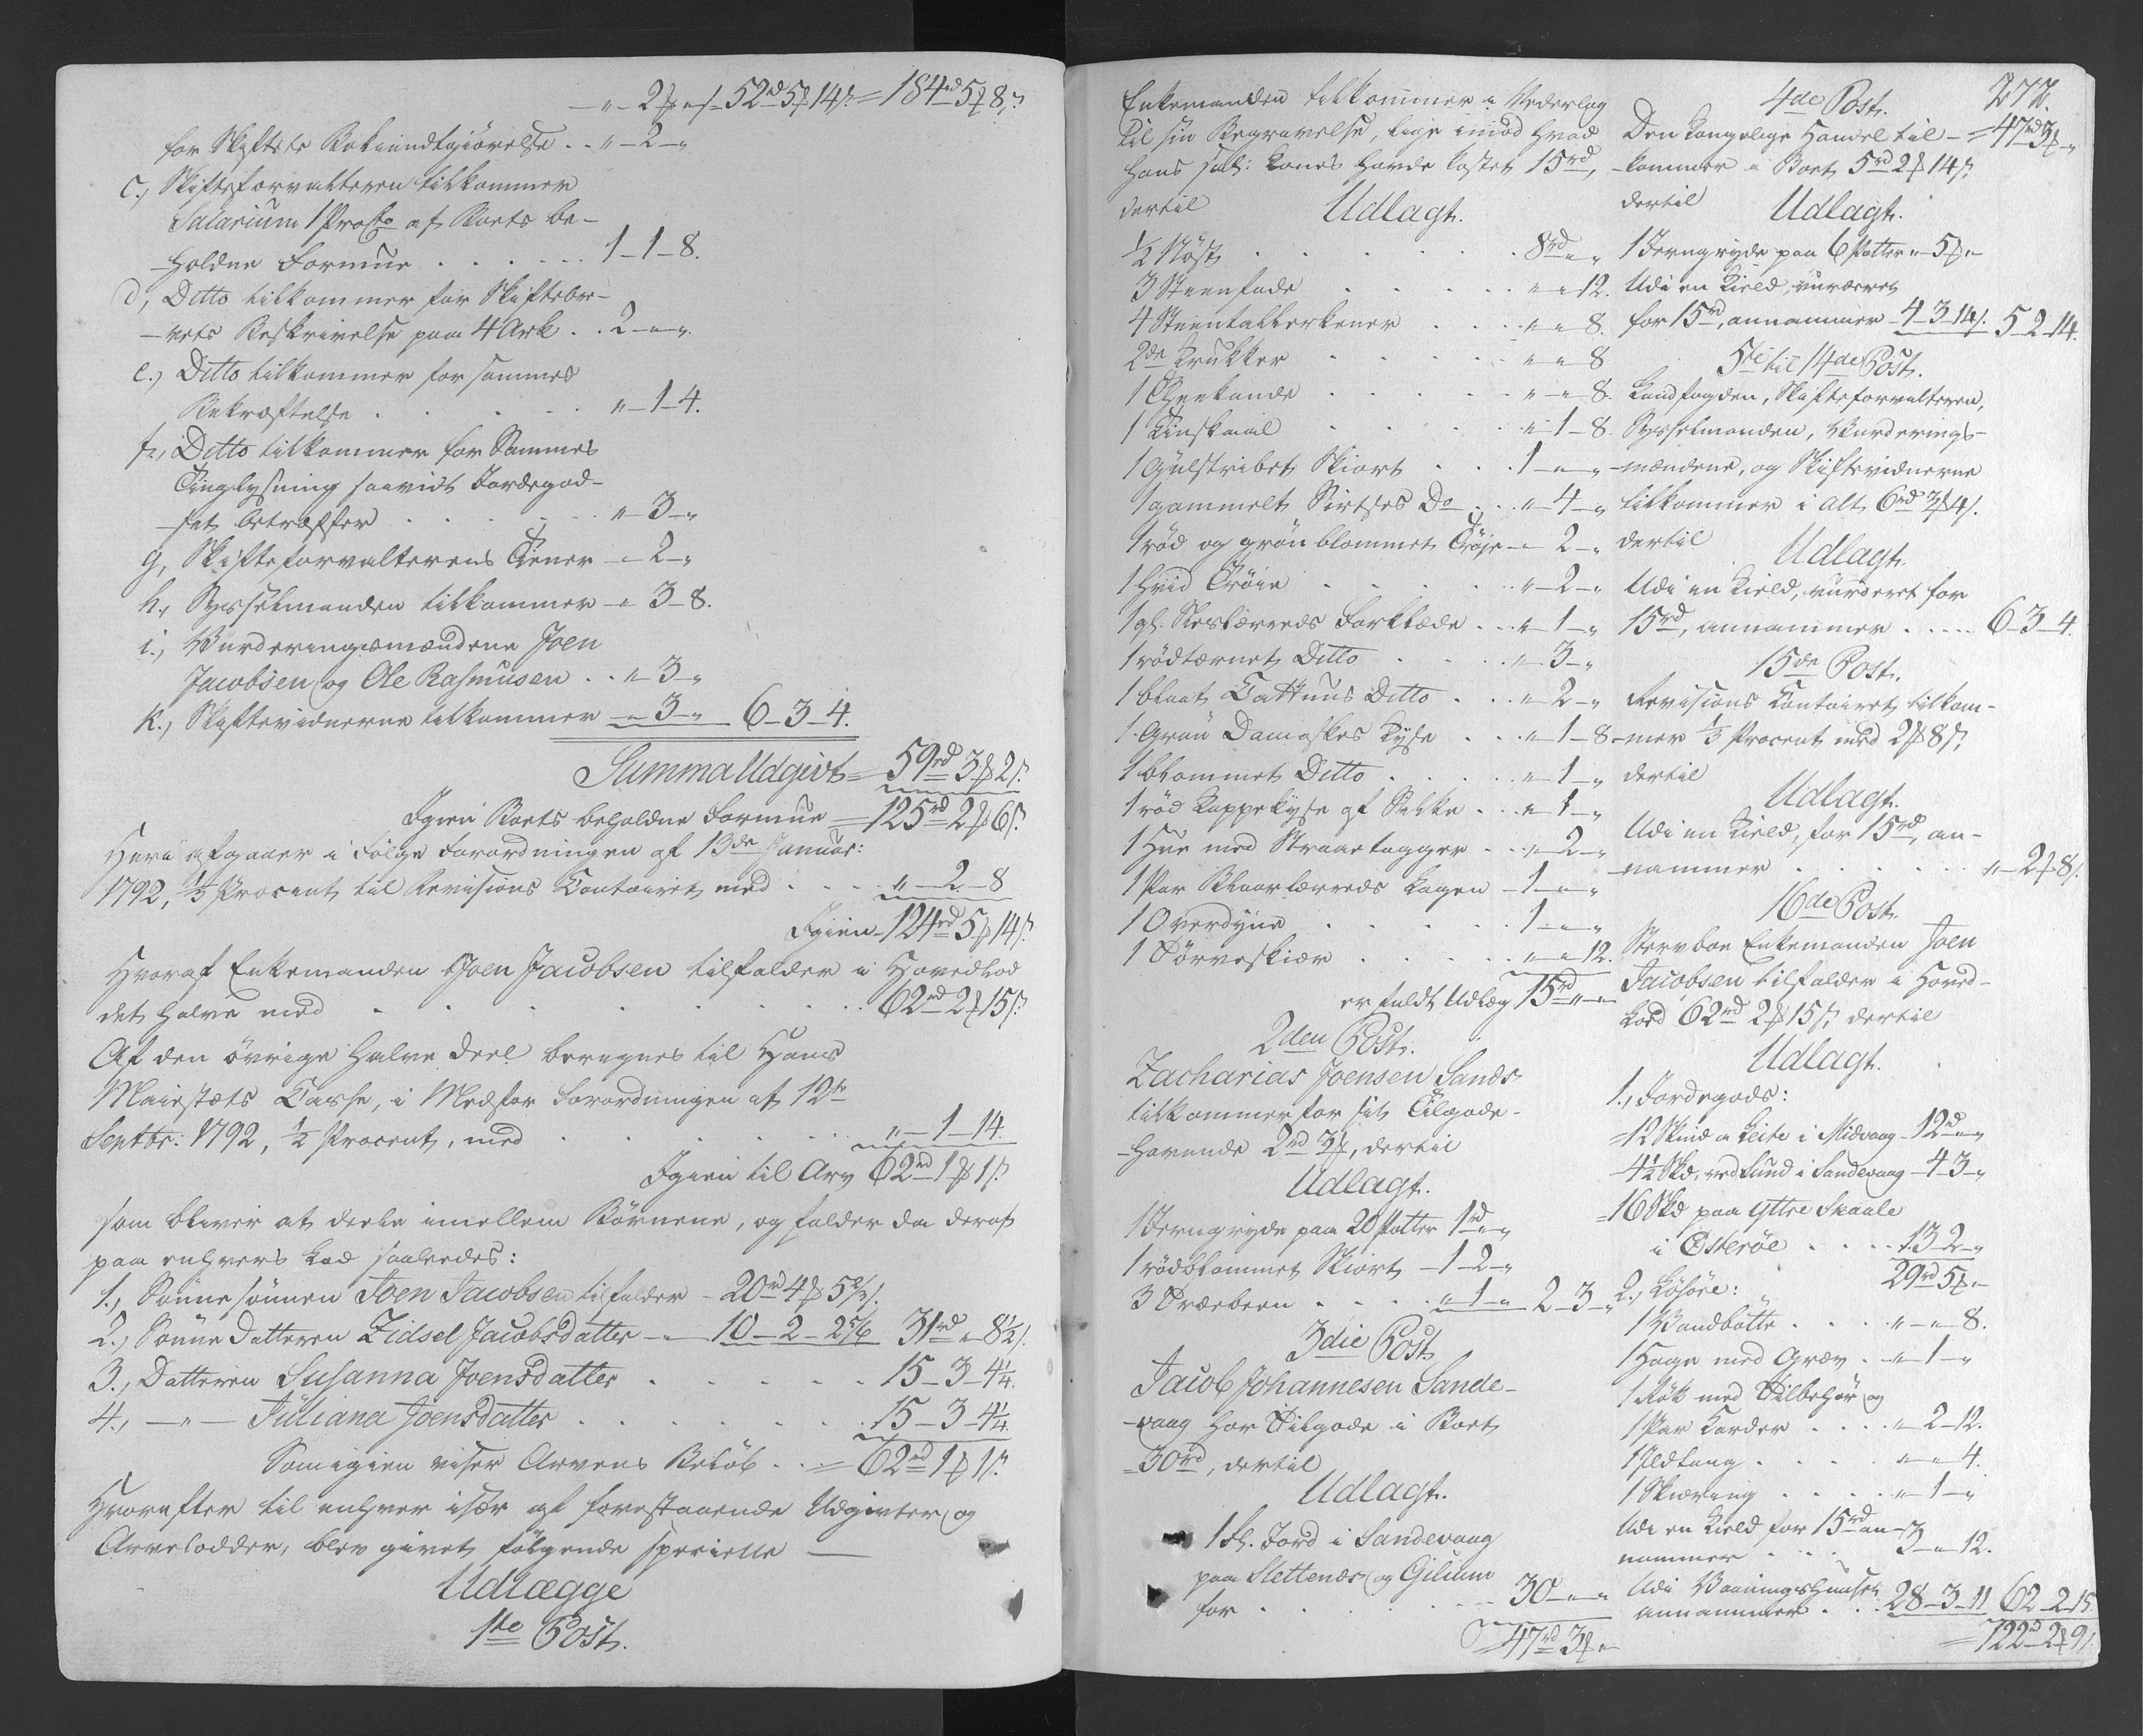 — „ — 2 ℔ „ ß 52rd 5 ℔ 14 ß = 184rd 5 ℔ 8 ß
for Skiftets Bekiendtgiörelse . . „ — 2 — „
C., Skifteforvalteren tilkommer
Salarium 1 ProCto af Boets be-
-holdne Formue . . . . . . 1 — 1 — 8.
d, Ditto tilkommer for Skiftebre-
-vets Beskrivelse paa 4 Ark . . 2 — „ — „
e., Ditto tilkommer for sammes
Bekræftelse . . . . . . „ — 1 — 4.
f., Ditto tilkommer for Sammes
Tinglysning saavidt Jordegod-
-set betræffer . . . . . „ — 3 — „
g, Skifteforvalterens Tiener — „ — 2 — „
h., Sysselmanden tilkommer — „ 3 — 8.
i., Vurderingsmændene Joen
Jacobsen og Ole Rasmusen . . „ — 3 — „
k., Skiftevidnerne tilkommer — „ 3 — „ 6 — 3 — 4.
Summa Udgivt = 59rd 3 ℔ 2 ß
Igien Boets beholdne Formue = 125rd 2 ℔ 6 ß
Hera afgaaer i Fölge Forordningen af 13de Januar:
1792, 1/3 Procent til Revisions Contoiret med . . . „ — 2 — 8
Igien — 124rd 5 ℔ 14 ß
Hvoraf Enkemanden Joen Jacobsen tilfalder i Hovedlod
det halve med . . . . . . . 62rd 2 ℔ 15 ß
Af den övrige halve Deel beregnes til Hans
Maiestæts Casse, i Medfør Forordningen af 12te
Septbr: 1792, 1/2 Procent, med . . . . . „ — 1 — 14.
Igien til Arv 62rd 1 ℔ 1 ß
som bliver at deele imellem Börnene, og falder da deraf
paa enhvers Lod saaledes:
1., Sönnesönnen Joen Jacobsen tilfalder — 20rd 4 ℔ 5 2/3 ß
2., Sönne Datteren Zidsel Jacobsdatter — „ — 10 — 2 — 2 5/6 31rd „ 8 1/2 ß
3., Datteren Susanna Joensdatter . . . . . 15 — 3 — 4 1/4.
4., — „ — Juliana Joensdatter . . . . . . 15 — 3 — 4 1/4
Som igien viser Arvens Belöb . . = 62rd 1 ℔ 1 ß
Hvorefter til enhver især af forestaaende Udgivter og
Arvelodder, blev givet følgende specielle —
Udlægge
1te Post.
Enkemanden tilkommer i Vederlag
til sin Begravelse, lige imod hvad
hans sal: Kones havde kostet 15rd,
dertil Udlagt.
1/2 Nöst . . . . . . . 8rd „ „
3 Steenfade . . . . . „ „ 12.
4 Steentallerkener . . . . „ „ 8.
2de Krukker . . . . . „ „ 8
1 Theekande . . . . . „ — „ 8.
1 Tinskaal . . . . . „ 1 — 8.
1 Gulstribet Skiort . . . 1 — „ — „
1 gammelt Sirtses Do . . . „ — 4 — „
1 röd og grön blommet Tröje — „ 2 — „
1 hvid Tröie . . . . . „ — 2 — „
1 gl. Neslærreds Forklæde . . „ 1 — „
1 rödtærnet Ditto . . . . „ — 3 — „
1 blaat Cattuns Ditto . . . „ — 2 — „
1 Grön Damaskes Kyse . . . „ 1 — 8
1 blommet Ditto . . . . . „ — 1 — „
1 röd Kappekyse af Silke . . „ 1 — „
1 Hue med Straaetagger . . . „ 2 — „
1 Par Blaarlærreds Lagen — 1 — „ — „
1 Overdyne . . . . . 1 — „ — „
1 Törveskiær . . . . . „ — „ 12.
er fuldt Udlæg 15rd „ — „
2den Post.
Zacharias Joensen Sands
tilkommer for sit Tilgode-
-havende 2rd 3 ℔, dertil
Udlagt.
1 Jerngryde paa 20 Potter 1rd „ „
1 rödblommet Skiort — 1 — 2 — „
3 Træebeen . . . . „ 1 — „ 2 — 3 — „
3die Post
Jacob Johannesen Sande-
-vaag har Tilgode i Boet
30rd, dertil
Udlagt.
1 Fl. Jord i Sandevaag
paa Slettenes og Gilium
for . . . . . . . 30 — „ — „
47rd 3 ℔ „
272.
4de Post.
Den kongelige Handel til- = 47rd 3 ℔ „
-kommer i Boet 5rd 2 ℔ 14 ß,
dertil Udlagt.
1 Jerngryde paa 6 Potter „ — 5 ℔ „
Udi en Kield, vurderet
for 15rd, annammer — 4 — 3 — 14 ß. 5 — 2 — 14.
5te til 14de Post.
Landfogden, Skifteforvalteren,
Sysselmanden, Vurderings-
-mændene, og Skiftevidnerne
tilkommer i alt 6rd 3 ℔ 4 ß.
dertil Udlagt.
Udi en Kield, vurderet for
15rd, annammer . . . . . 6 — 3 — 4.
15de Post.
Revisions Contoiret tilkom-
-mer 1/3 Procent med 2 ℔ 8 ß,
dertil Udlagt.
Udi en Kield, for 15rd, an-
-nammer . . . . . . „ — 2 ℔ 8 ß.
16de Post.
Stervboe Enkemanden Joen
Jacobsen tilfalder i Hoved-
Lod 62rd 2 ℔ 15 ß, dertil
Udlagt.
1., Jordegods:
= 12 Skind a Leite i Midvaag — 12rd „ „
4 1/2 Skd. ved Lund i Sandevaag — 4 — 3 — „
= 16 Skd paa yttre Skaale
i Österöe . . . . 13 — 2 — „
29rd 5 ℔ „
2., Lösöre:
1 Vandbötte . . . . „ — „ — 8.
1 Hage med Græv . . „ 1 — „
1 Rök med Tilbehör og
1 Par Karder . . . . „ — 2 — 12.
1 Ildtang . . . . . „ — „ — 4.
1 Skiæring . . . . . „ — 1 — „
Udi en Kield for 15rd an-
nammer . . . . 3 — „ — 12.
Udi Vaaningshuuset
annammer . . . 28 — 3 — 11 62 — 2 — 15.
= 122rd 2 ℔ 9 ß.